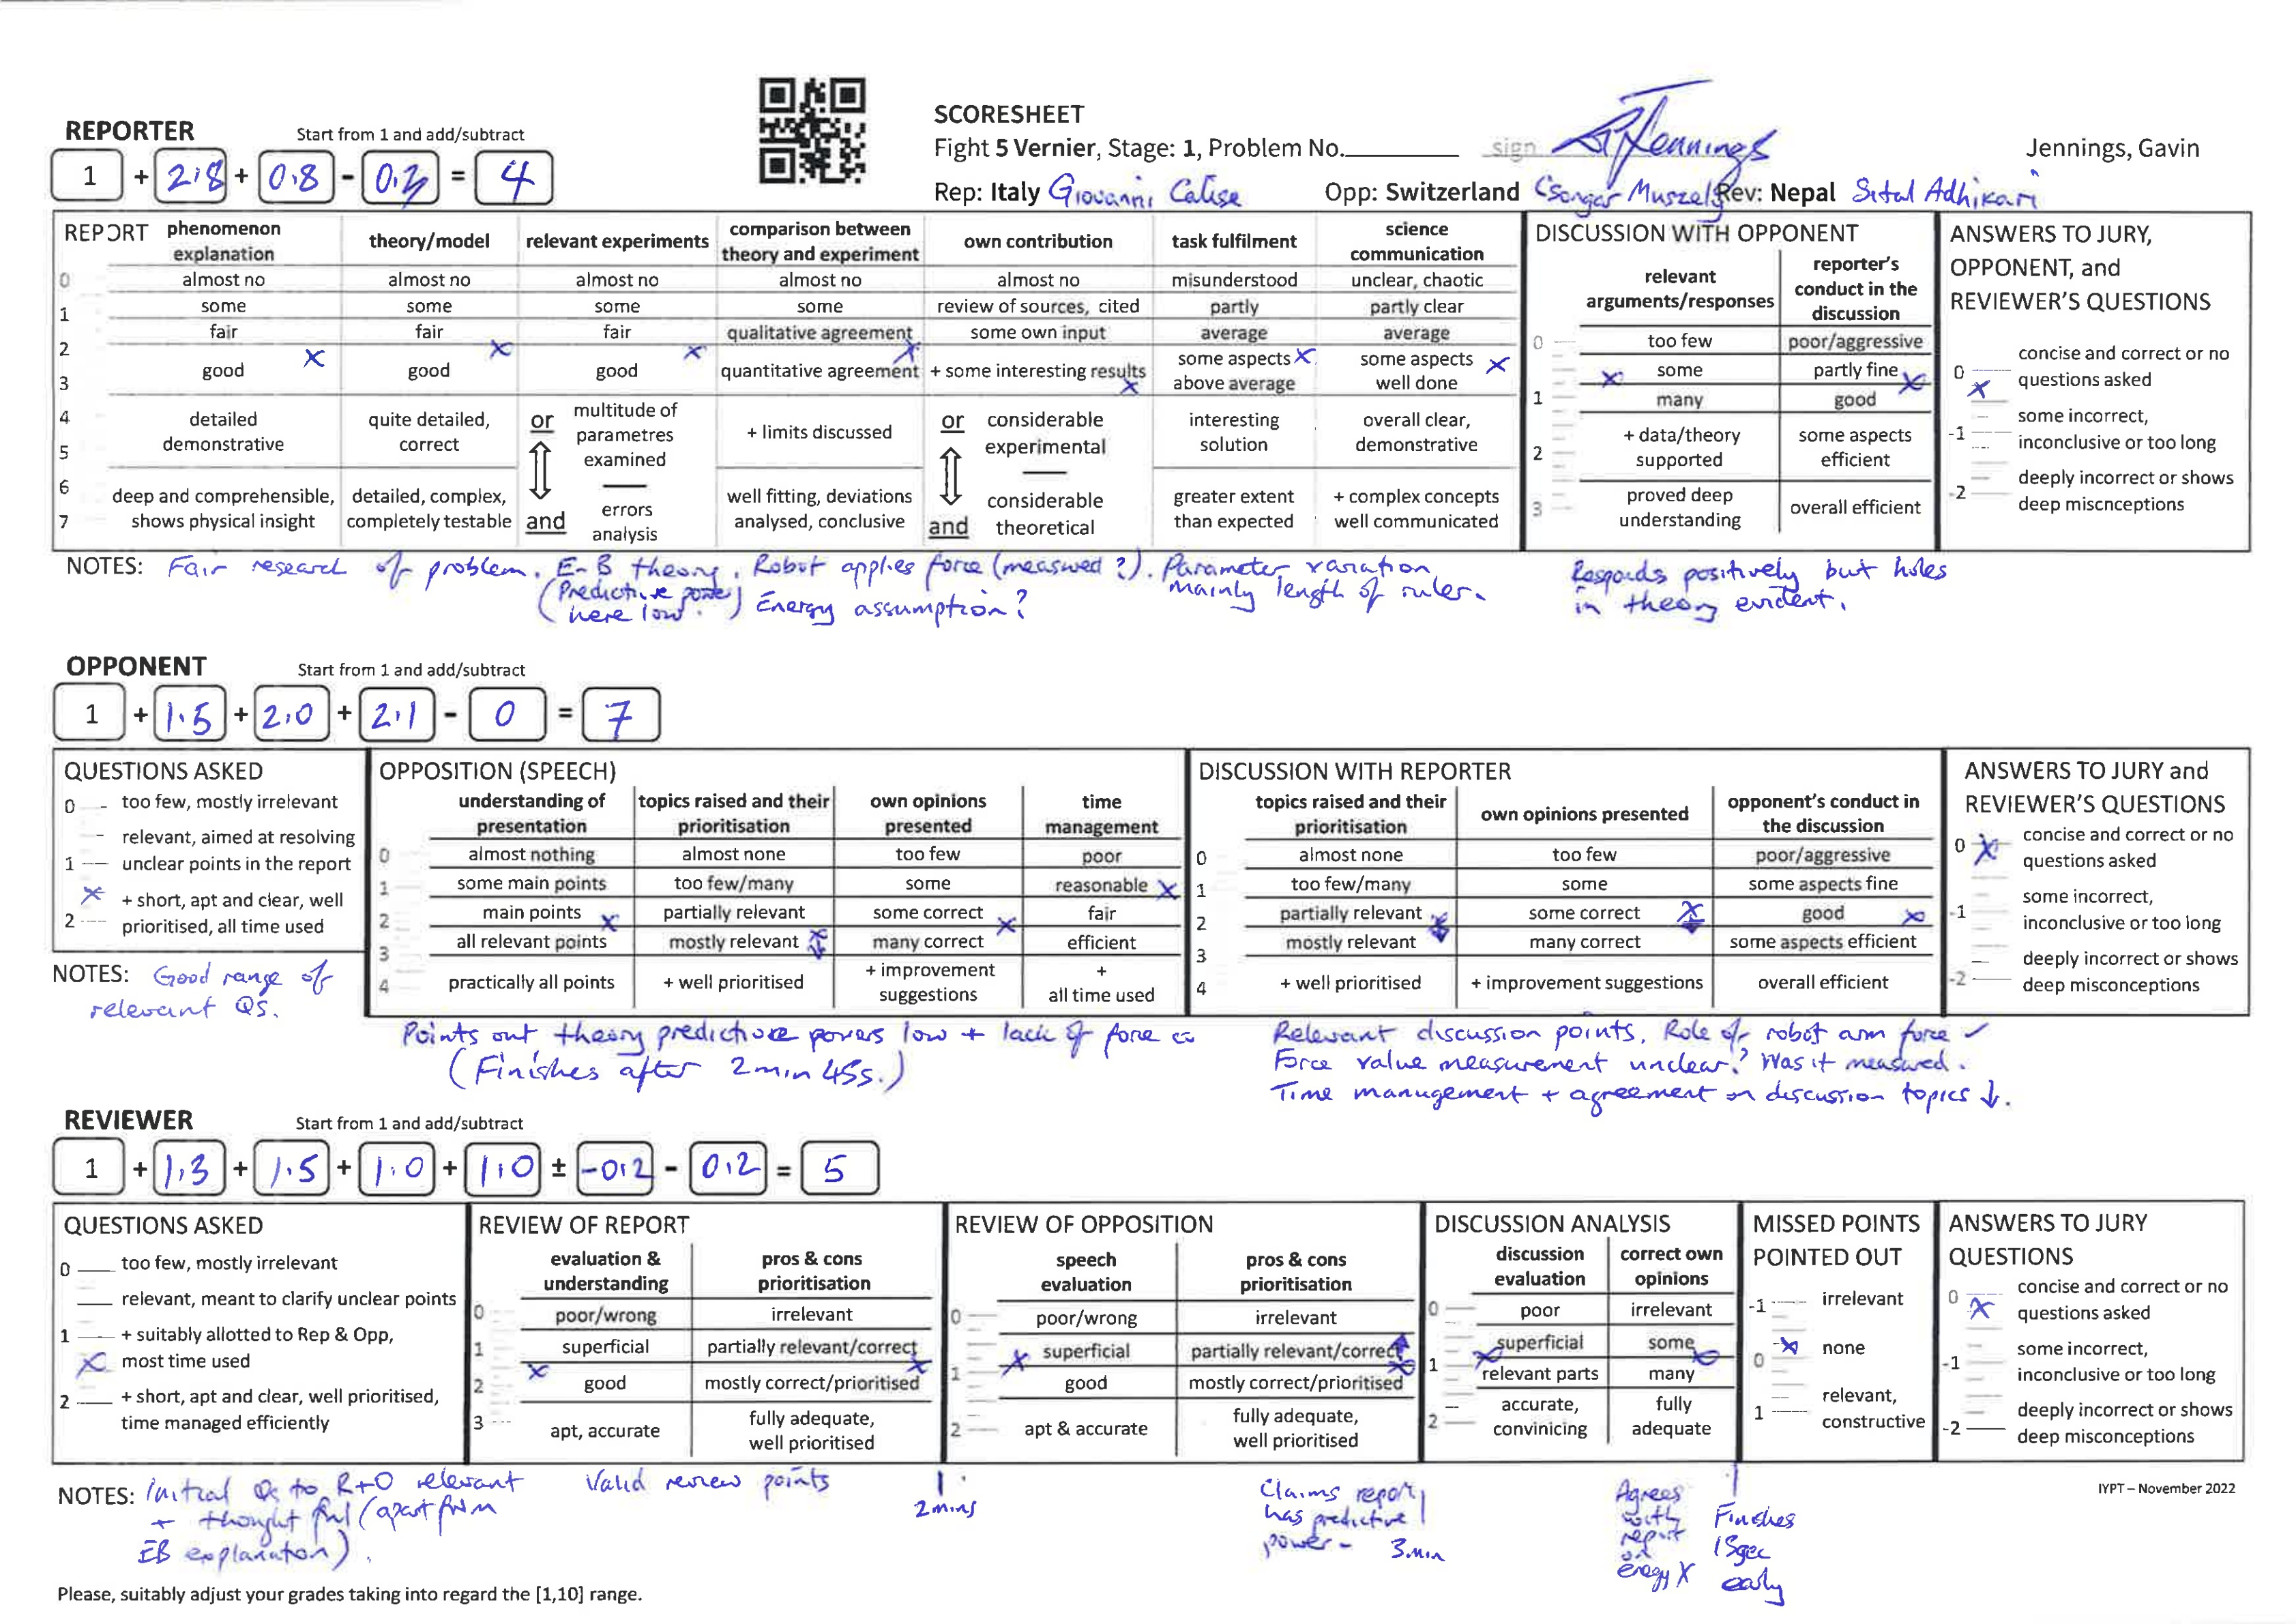 SCORESHEET
REPORTER Start from 1 and add/subtract
Fight 5 Vernier, Stage: 1, Problem No. sign Jennings Jennings, Gavin
1 + 2.8 + 0.8 - 0.3 = 4
Rep: Italy Giovanni Calise Opp: Switzerland Rev: Nepal Sital Adhikari
REPORT phenomenon explanation theory/model relevant experiments comparison between theory and experiment own contribution task fulfilment science communication
0 almost no almost no almost no almost no almost no misunderstood unclear, chaotic
1 some some some some review of sources, cited partly partly clear
2 fair fair fair qualitative agreement some own input average average
3 good good good quantitative agreement + some interesting results some aspects above average some aspects well done
4 5 detailed demonstrative quite detailed, correct or multitude of parametres examined + limits discussed or considerable experimental interesting solution overall clear, demonstrative
6 7 deep and comprehensible, shows physical insight detailed, complex, completely testable and errors analysis well fitting, deviations analysed, conclusive and considerable theoretical greater extent than expected + complex concepts well communicated
DISCUSSION WITH OPPONENT
relevant arguments/responses reporter's conduct in the discussion
0 too few poor/aggressive
some partly fine
1 many good
2 + data/theory supported some aspects efficient
3 proved deep understanding overall efficient
ANSWERS TO JURY,
OPPONENT, and
REVIEWER'S QUESTIONS
0 concise and correct or no
questions asked
some incorrect,
-1 inconclusive or too long
deeply incorrect or shows
-2 deep miscnceptions
NOTES: Fair research of problem. E-B theory. Robot applies force (measured?). Parameter variation
(Predictive power here low.) Energy assumption? mainly length of ruler.
Responds positively but holes
in theory evident.
OPPONENT Start from 1 and add/subtract
1 + 1.5 + 2.0 + 2.1 - 0 = 7
QUESTIONS ASKED
0 too few, mostly irrelevant
relevant, aimed at resolving
1 unclear points in the report
+ short, apt and clear, well
2 prioritised, all time used
NOTES: Good range of
relevant Qs.
OPPOSITION (SPEECH)
understanding of presentation topics raised and their prioritisation own opinions presented time management
0 almost nothing almost none too few poor
1 some main points too few/many some reasonable
2 main points partially relevant some correct fair
3 all relevant points mostly relevant many correct efficient
4 practically all points + well prioritised + improvement suggestions + all time used
Points out theory predictive powers low + lack of force
(Finishes after 2min 45s.)
DISCUSSION WITH REPORTER
topics raised and their prioritisation own opinions presented opponent's conduct in the discussion
0 almost none too few poor/aggressive
1 too few/many some some aspects fine
2 partially relevant some correct good
3 mostly relevant many correct some aspects efficient
4 + well prioritised + improvement suggestions overall efficient
Relevant discussion points. Role of robot arm force ✓
Force value measurement unclear? Was it measured.
Time management + agreement on discussion topics ↓.
ANSWERS TO JURY and
REVIEWER'S QUESTIONS
0 concise and correct or no
questions asked
some incorrect,
-1 inconclusive or too long
deeply incorrect or shows
-2 deep misconceptions
REVIEWER Start from 1 and add/subtract
1 + 1.3 + 1.5 + 1.0 + 1.0 ± -0.2 - 0.2 = 5
QUESTIONS ASKED
0 too few, mostly irrelevant
relevant, meant to clarify unclear points
1 + suitably allotted to Rep & Opp,
most time used
2 + short, apt and clear, well prioritised,
time managed efficiently
REVIEW OF REPORT
evaluation & understanding pros & cons prioritisation
0 poor/wrong irrelevant
1 superficial partially relevant/correct
2 good mostly correct/prioritised
3 apt, accurate fully adequate, well prioritised
REVIEW OF OPPOSITION
speech evaluation pros & cons prioritisation
0 poor/wrong irrelevant
superficial partially relevant/correct
1 good mostly correct/prioritised
2 apt & accurate fully adequate, well prioritised
DISCUSSION ANALYSIS
discussion evaluation correct own opinions
0 poor irrelevant
superficial some
1 relevant parts many
2 accurate, convinicing fully adequate
MISSED POINTS
POINTED OUT
-1 irrelevant
none
0
relevant,
1 constructive
ANSWERS TO JURY
QUESTIONS
0 concise and correct or no
questions asked
some incorrect,
-1 inconclusive or too long
deeply incorrect or shows
-2 deep misconceptions
NOTES: Initial Qs to R+O relevant
+ thoughtful (apart from
EB explanation).
Valid review points
2mins
Claims report
has predictive
power - 3min
Agrees
with
report
on
energy X
Finishes
15sec
early
IYPT – November 2022
Please, suitably adjust your grades taking into regard the [1,10] range.